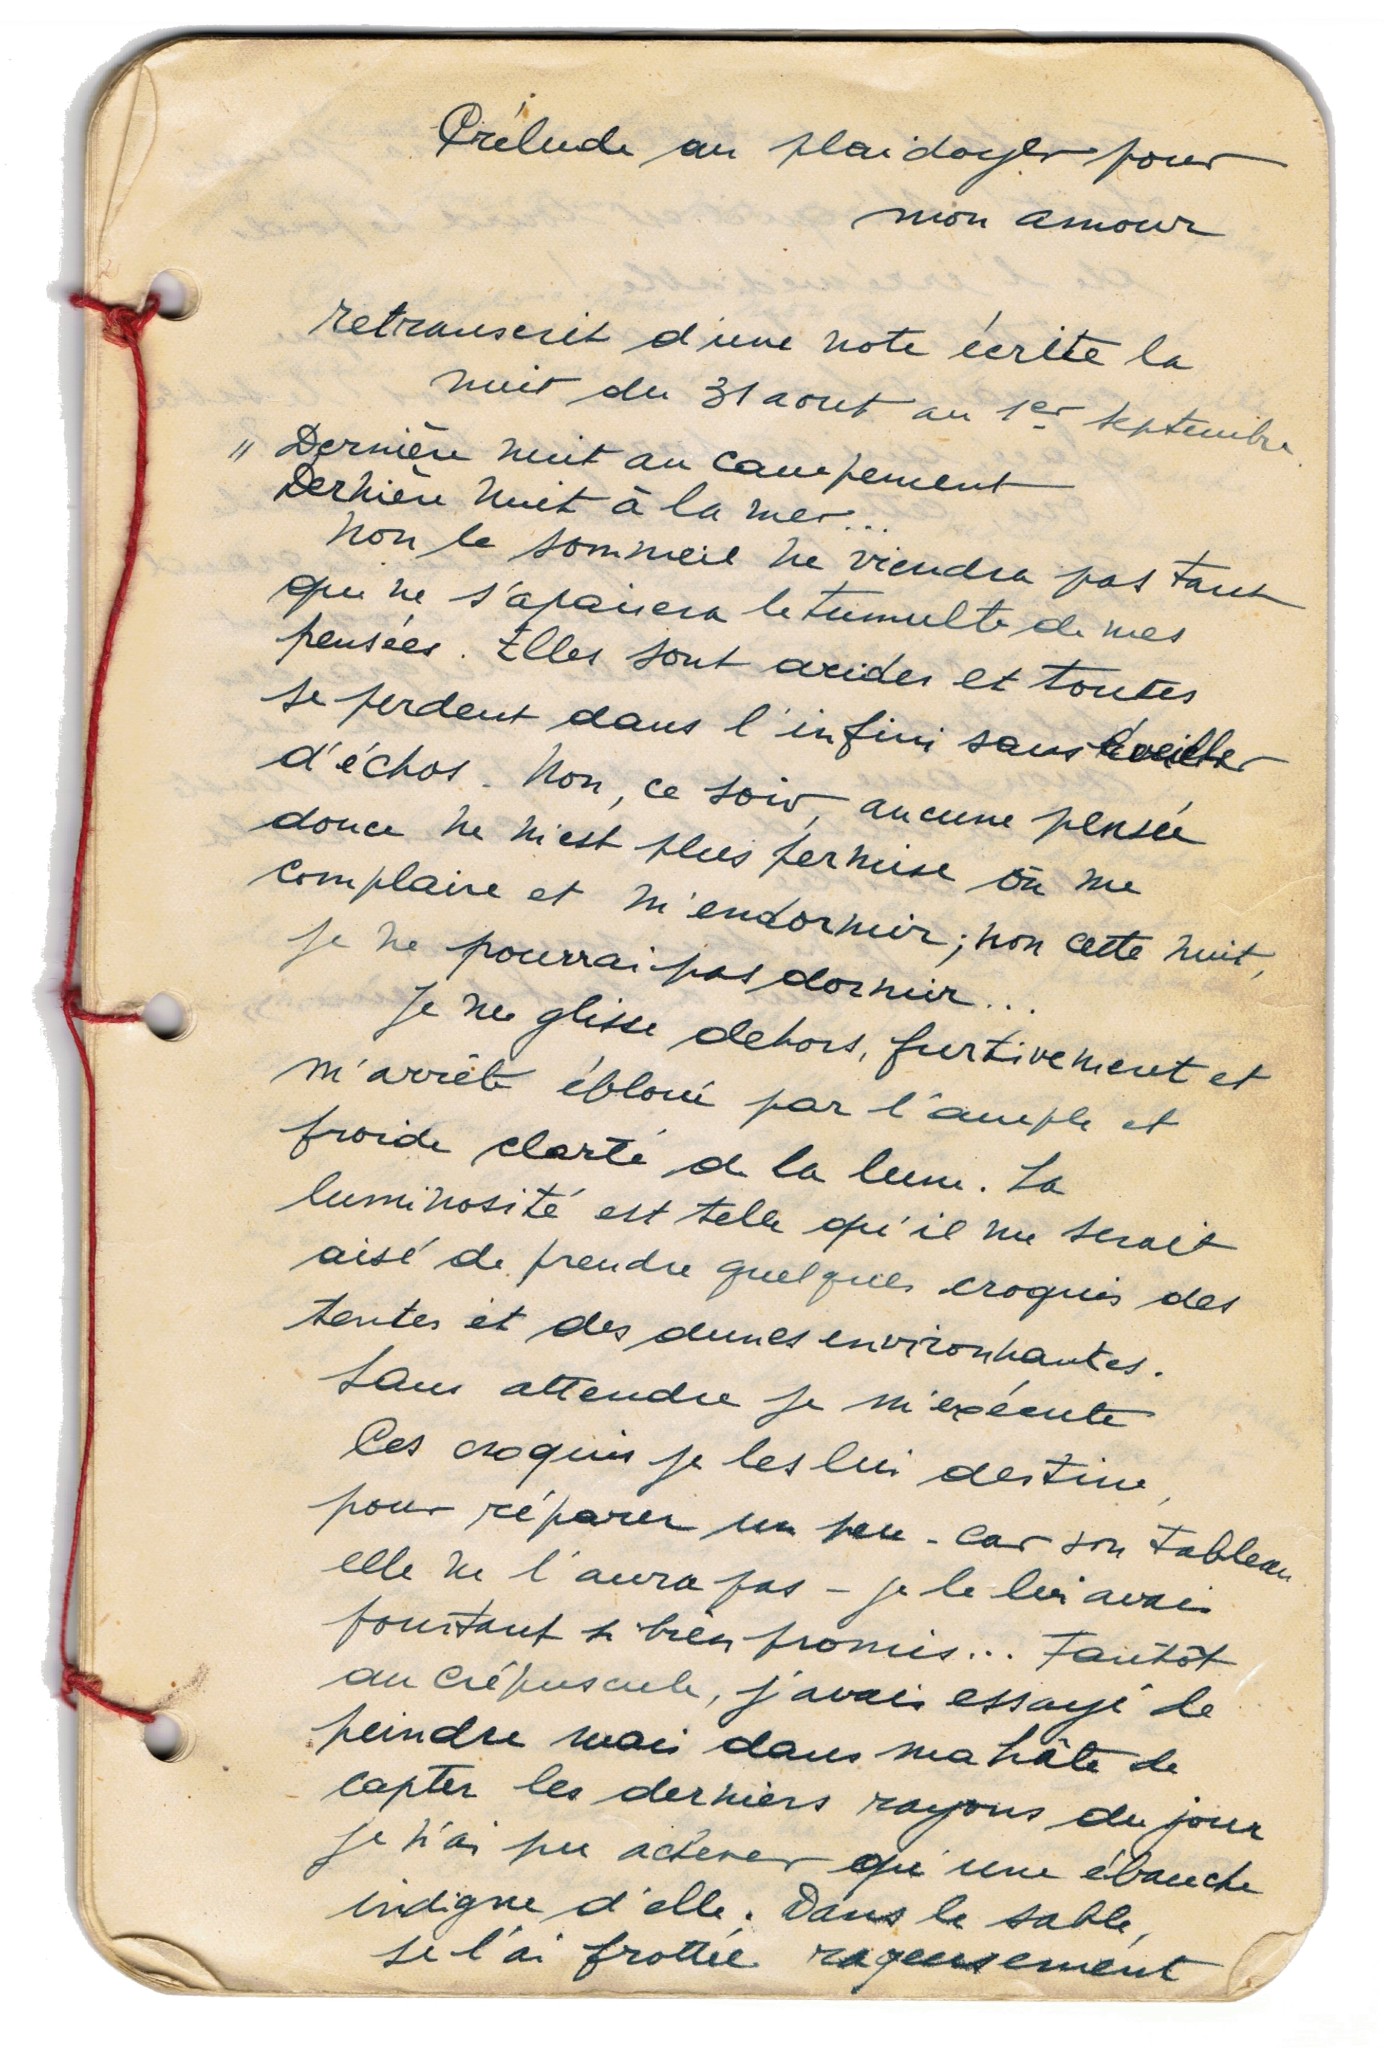 Prélude au plaidoyer pour
mon amour
retranscrit d'une note écrite la
nuit du 31 aout au 1er septembre.
" Dernière nuit au campement
Dernière nuit à la mer...
Non le sommeil ne viendra pas tant
que ne s'apaisera le tumulte de mes
pensées. Elles sont arides et toutes
se perdent dans l'infini sans éveiller
d'échos. Non, ce soir, aucune pensée
douce ne m'est plus permise où me
complaire et m'endormir; non cette nuit,
je ne pourrai pas dormir...
Je me glisse dehors, furtivement et
m'arrête ébloui par l'ample et
froide clarté de la lune. La
luminosité est telle qu'il me serait
aisé de prendre quelques croquis des
tentes et des dunes environnantes.
Sans attendre je m'exécute
Ces croquis je les lui destine,
pour réparer un peu - car son tableau
elle ne l'aura pas - je le lui avais
pourtant si bien promis... Tantôt
au crépuscule, j'avais essayé de
peindre mais dans ma hâte de
capter les derniers rayons du jour
je n'ai pu achever qu'une ébauche
indigne d'elle. Dans le sable,
je l'ai frottée rageusement